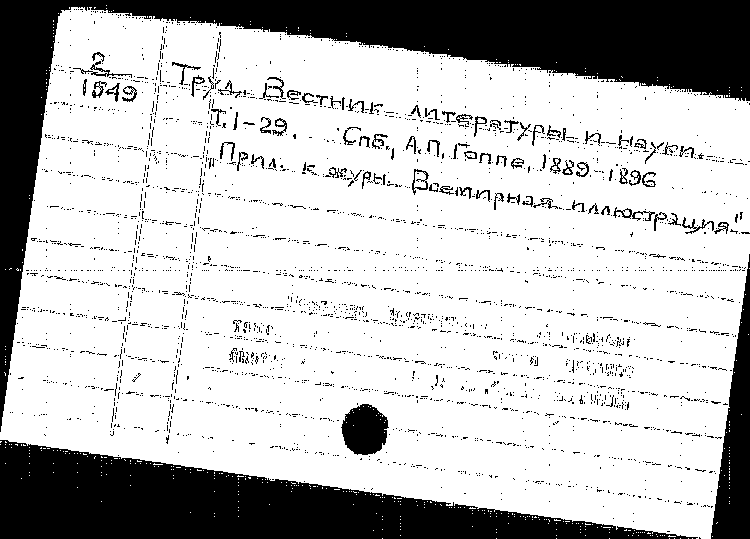 2
1549
Труд. Вестник литературы и науки.
Т. 1-29. Спб., А.П. Гоппе, 1889-1896
Прил. к журн. Всемирная иллюстрация"